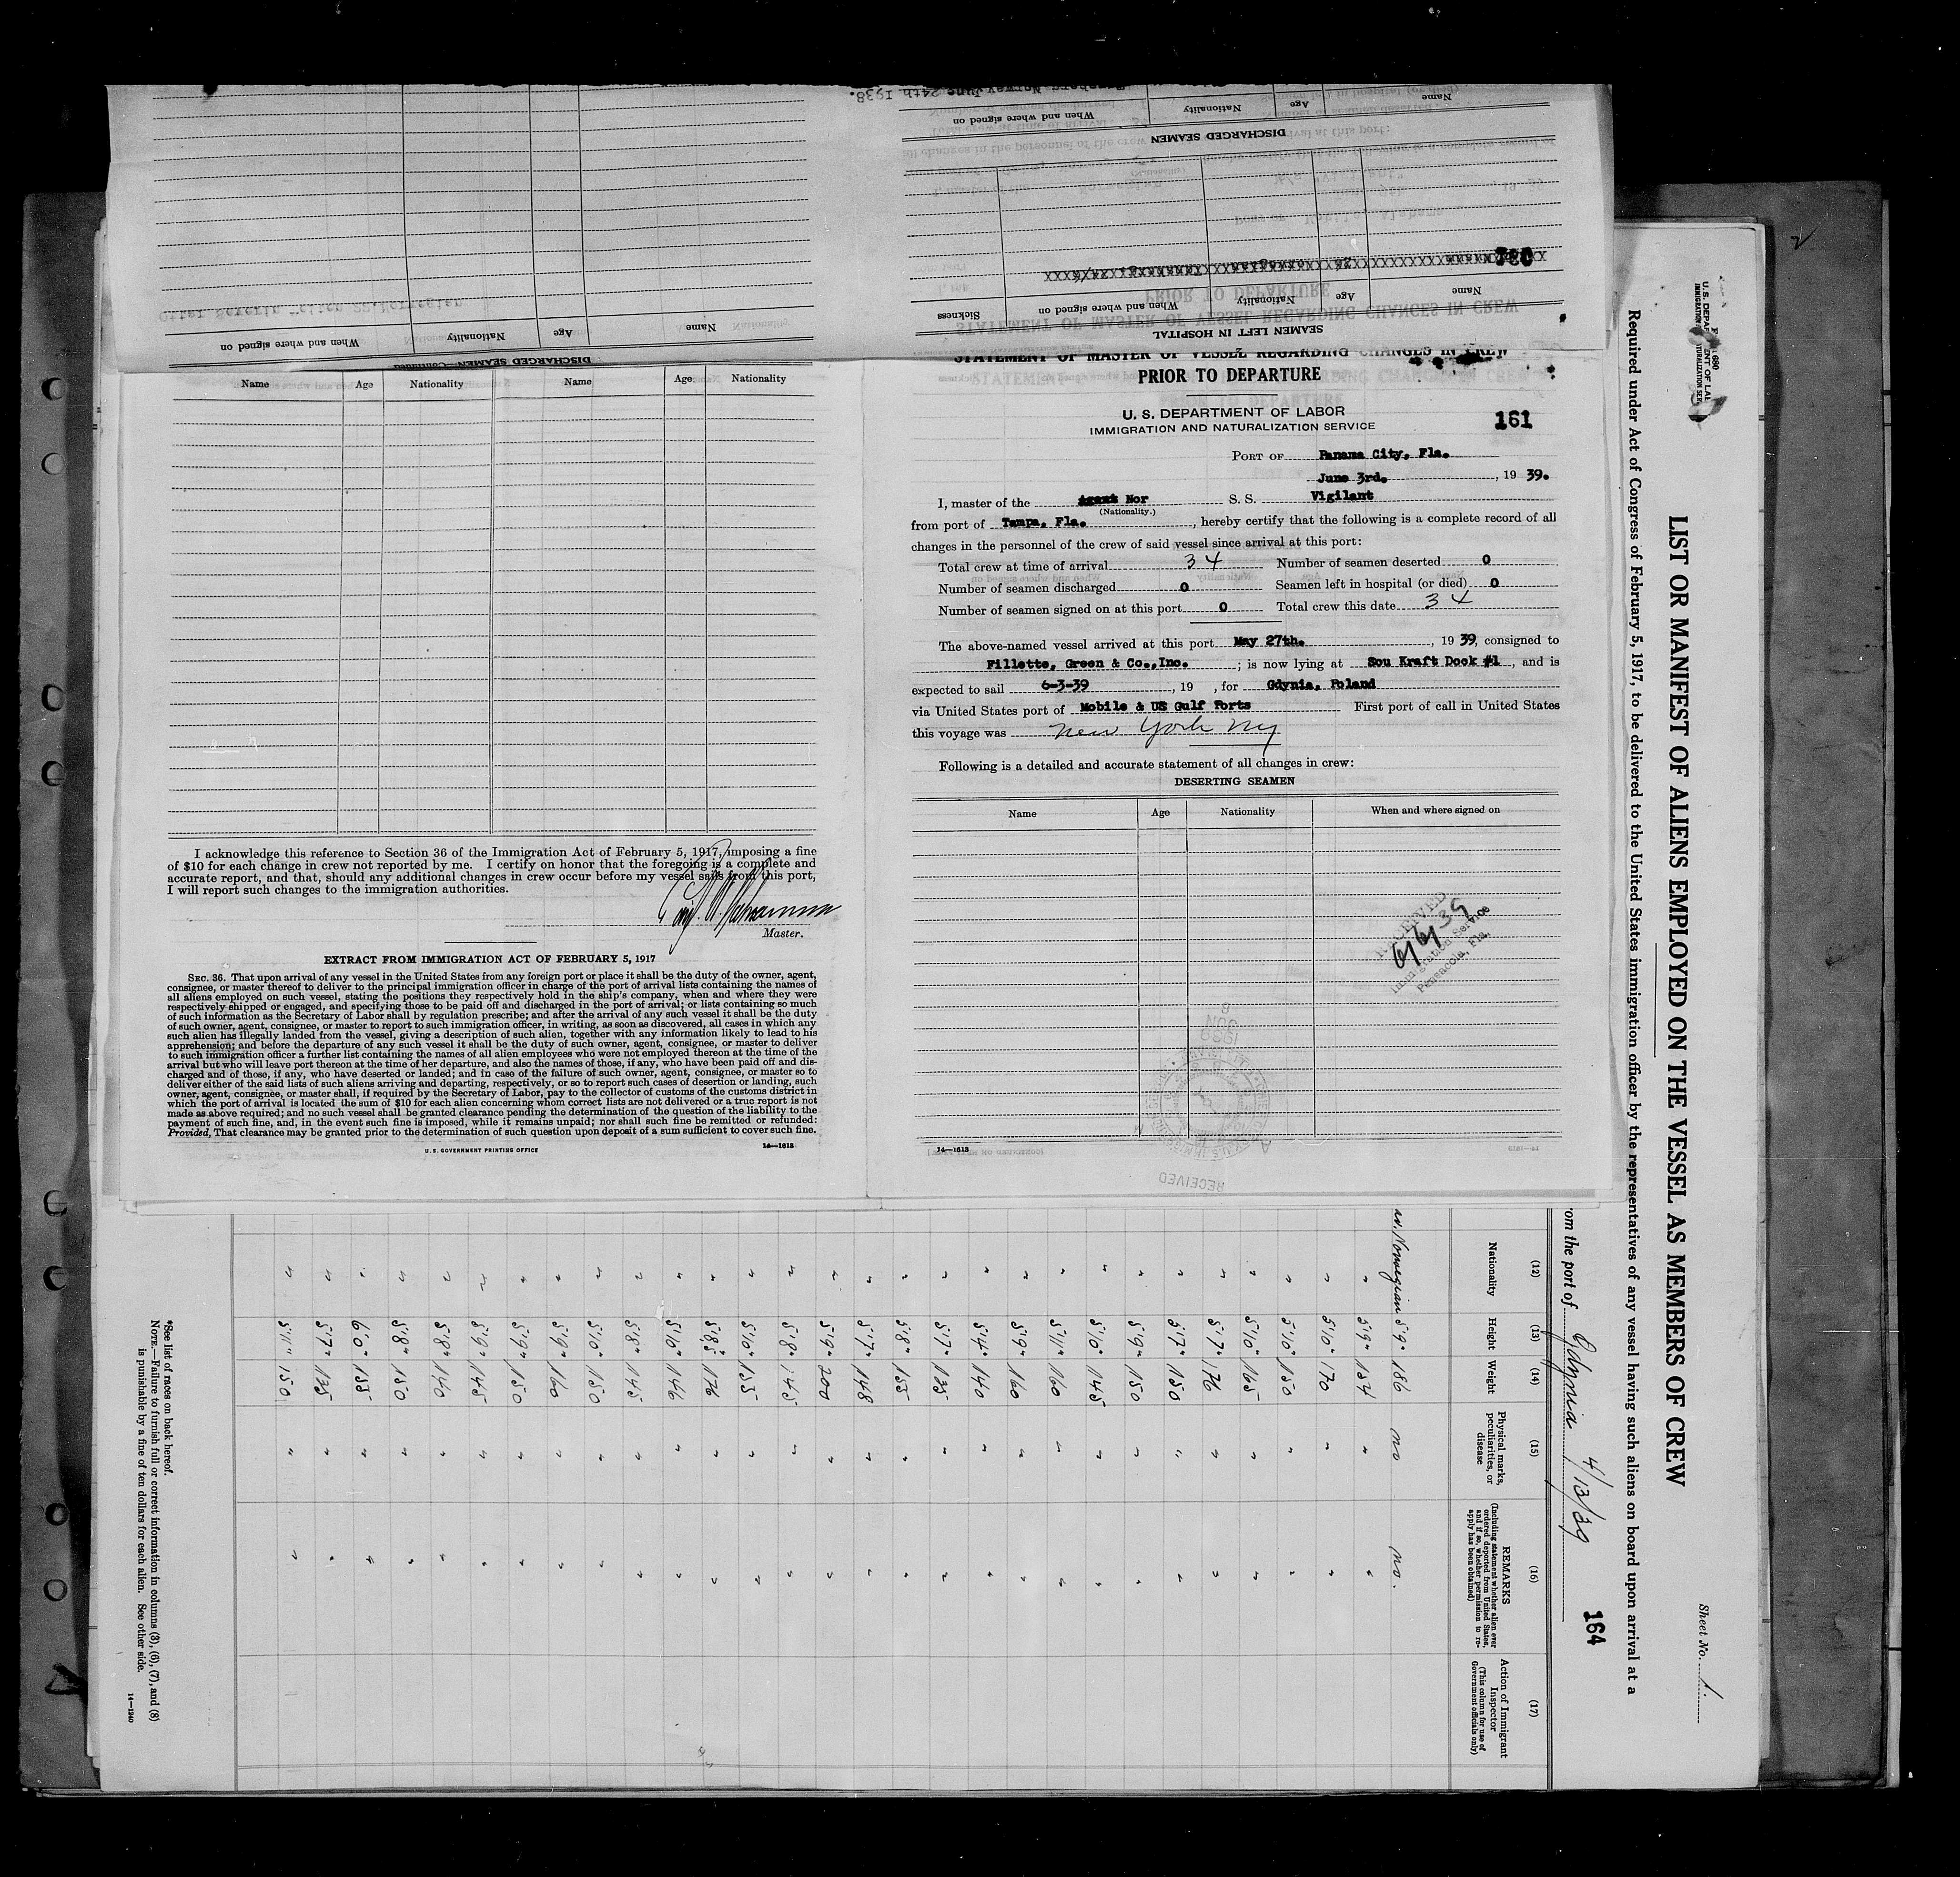 STATEMENT OF MASTER OF VESSEL REGARDING CHANGES IN CREW
PRIOR TO DEPARTURE
U. S. DEPARTMENT OF LABOR
IMMIGRATION AND NATURALIZATION SERVICE
161
PORT OF Panama City, Fla.
June 3rd., 19 39.
I, master of the Nor S. S. Vigilant
(Nationality.)
from port of Tampa, Fla., hereby certify that the following is a complete record of all
changes in the personnel of the crew of said vessel since arrival at this port:
Total crew at time of arrival 34 Number of seamen deserted 0
Number of seamen discharged 0 Seamen left in hospital (or died) 0
Number of seamen signed on at this port 0 Total crew this date 34
The above-named vessel arrived at this port May 27th., 19 39, consigned to
Fillette, Green & Co.,Inc. ; is now lying at Sou Kraft Dock #1, and is
expected to sail 6-3-39, 19 , for Gdynia, Poland
via United States port of Mobile & US Gulf Ports First port of call in United States
this voyage was New York NY
Following is a detailed and accurate statement of all changes in crew:
DESERTING SEAMEN
Name Age Nationality When and where signed on
RECEIVED
6/6/39
Immigration Service
Pensacola, Fla.
1939
JUN
8
RECEIVED
14—1613
Name Age Nationality Name Age Nationality
I acknowledge this reference to Section 36 of the Immigration Act of February 5, 1917, imposing a fine
of $10 for each change in crew not reported by me. I certify on honor that the foregoing is a complete and
accurate report, and that, should any additional changes in crew occur before my vessel sails from this port,
I will report such changes to the immigration authorities.
Master.
EXTRACT FROM IMMIGRATION ACT OF FEBRUARY 5, 1917
SEC. 36. That upon arrival of any vessel in the United States from any foreign port or place it shall be the duty of the owner, agent,
consignee, or master thereof to deliver to the principal immigration officer in charge of the port of arrival lists containing the names of
all aliens employed on such vessel, stating the positions they respectively hold in the ship's company, when and where they were
respectively shipped or engaged, and specifying those to be paid off and discharged in the port of arrival; or lists containing so much
of such information as the Secretary of Labor shall by regulation prescribe; and after the arrival of any such vessel it shall be the duty
of such owner, agent, consignee, or master to report to such immigration officer, in writing, as soon as discovered, all cases in which any
such alien has illegally landed from the vessel, giving a description of such alien, together with any information likely to lead to his
apprehension; and before the departure of any such vessel it shall be the duty of such owner, agent, consignee, or master to deliver
to such immigration officer a further list containing the names of all alien employees who were not employed thereon at the time of the
arrival but who will leave port thereon at the time of her departure, and also the names of those, if any, who have been paid off and dis-
charged and of those, if any, who have deserted or landed; and in case of the failure of such owner, agent, consignee, or master so to
deliver either of the said lists of such aliens arriving and departing, respectively, or so to report such cases of desertion or landing, such
owner, agent, consignee, or master shall, if required by the Secretary of Labor, pay to the collector of customs of the customs district in
which the port of arrival is located the sum of $10 for each alien concerning whom correct lists are not delivered or a true report is not
made as above required; and no such vessel shall be granted clearance pending the determination of the question of the liability to the
payment of such fine, and, in the event such fine is imposed, while it remains unpaid; nor shall such fine be remitted or refunded:
Provided, That clearance may be granted prior to the determination of such question upon deposit of a sum sufficient to cover such fine.
U. S. GOVERNMENT PRINTING OFFICE 14—1613
Norway June 24th 1938.
Name Age Nationality When and where signed on
DISCHARGED SEAMEN
Name Age Nationality When and where signed on Sickness
SEAMEN LEFT IN HOSPITAL
Name Age Nationality When and where signed on
DISCHARGED SEAMEN—Continued
Sheet No. 1.
LIST OR MANIFEST OF ALIENS EMPLOYED ON THE VESSEL AS MEMBERS OF CREW
Required under Act of Congress of February 5, 1917, to be delivered to the United States immigration officer by the representatives of any vessel having such aliens on board upon arrival at a
164
om the port of Gdynia 4/13/39
(12) (13) (14) (15) (16) (17)
Nationality Height Weight Physical marks, peculiarities, or disease REMARKS (Including statement whether alien ever ordered deported from United States, and if so, whether permission to re-apply has been obtained) Action of Immigrant Inspector (This column for use of Government officials only)
Norwegian 5'9" 186 no no.
" 5'9" 154 " "
" 5'10" 170 " "
" 5'10" 150 " "
" 5'10" 165 " "
" 5'7" 176 " "
" 5'7" 150 " "
" 5'9" 150 " "
" 5'10" 145 " "
" 5'11" 160 " "
" 5'9" 160 " "
" 5'4" 140 " "
" 5'7" 135 " "
" 5'8" 155 " "
" 5'7" 148 " "
" 5'9" 200 " "
" 5'8" 145 " "
" 5'10" 155 " "
" 5'8" 176 " "
" 5'10" 146 " "
" 5'8" 145 " "
" 5'10" 150 " "
" 5'9" 160 " "
" 5'9" 150 " "
" 5'9" 145 " "
" 5'8" 140 " "
" 5'8" 150 " "
" 6'0" 155 " "
" 5'7" 135 " "
" 5'11" 150 " "
*See list of races on back hereof.
NOTE.—Failure to furnish full or correct information in columns (3), (6), (7), and (8)
is punishable by a fine of ten dollars for each alien. See other side.
14—1240